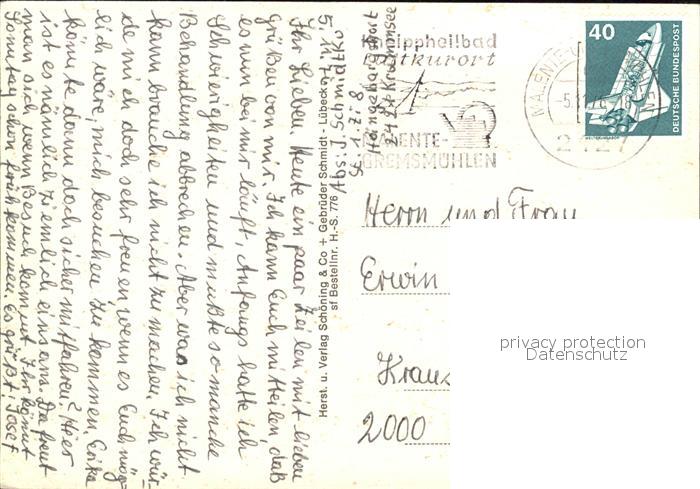 5.11.76
Ihr Lieben. Heute ein paar Zeilen mit lieben
Grüßen von mir. Ich kann Euch mitteilen, daß
es nun bei mir läuft, Anfangs hatte ich
Schwierigkeiten und mußte so manche
Behandlung abbrechen. Aber was ich nicht
kann brauche ich nicht zu machen. Ich wür-
de mich doch sehr freuen wenn es Euch mög-
lich wär, mich besuchen zu kommen. Erika
könnte dann doch sicher mitfahren? Hier
ist es nämlich ziemlich einsam. Da freut
man sich wenn Besuch kommt. Ihr könnt
Sonntag schon früh kommen. Es grüßt: Josef
Herst. u. Verlag Schöning & Co + Gebrüder Schmidt - Lübeck
sf Bestellnr. H.-S. 776
Abs: J. Schmidtko
2427 Krummsee
Kneippheilbad
Luftkurort
MALENTE-
GREMSMÜHLEN
MALENTE
-5.11.76-18
40
DEUTSCHE BUNDESPOST
Herrn und Frau
Erwin
2000
privacy protection
Datenschutz